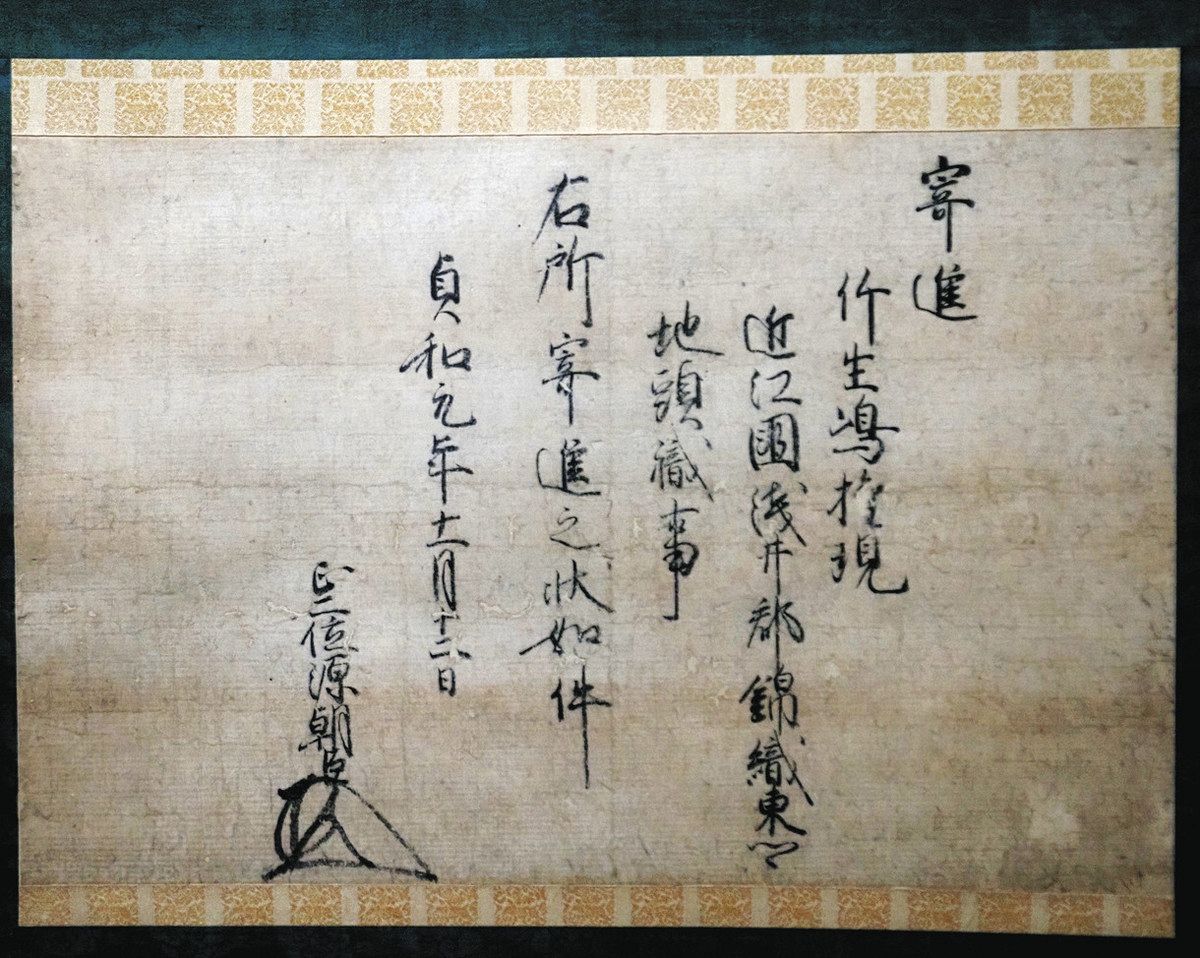 寄進
竹生嶋権現
近江國浅井郡錦織東
地頭職事
右所寄進之状如件
貞和元年十一月十二日
正二位源朝臣